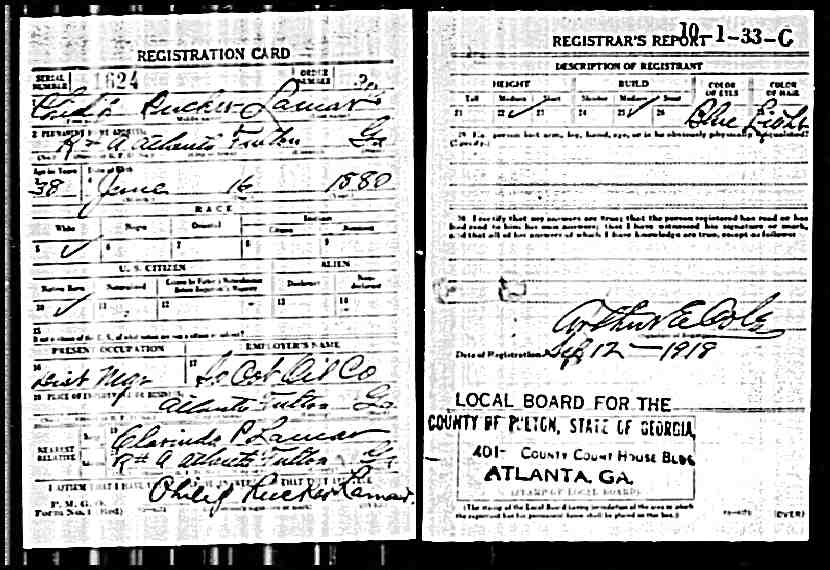 REGISTRATION CARD
SERIAL NUMBER 1624 ORDER NUMBER
Philip Rucker Lamar
2 PERMANENT HOME ADDRESS
R # A Atlanta Fulton Ga
Age in Years Date of Birth
38 June 16 1880
RACE
White Negro Oriental Indian
Citizen Noncitizen
5 ✓ 6 7 8 9
U. S. CITIZEN ALIEN
Native Born Naturalized Citizen by Father's Naturalization Before Registrant's Majority Declarant Non-declarant
10 ✓ 11 12 13 14
15
If not a citizen of the U. S., of what nation are you a citizen or subject?
PRESENT OCCUPATION EMPLOYER'S NAME
16 Dist Mgr 17 So Cot Oil Co
18 PLACE OF EMPLOYMENT OR BUSINESS
Atlanta Fulton Ga
NEAREST RELATIVE
19 Clarinda P. Lamar
R # A Atlanta Fulton Ga
I AFFIRM THAT I HAVE
P. M. G. O.
Form No. 1 (Red)
Philip Rucker Lamar
REGISTRAR'S REPORT 10-1-33-C
DESCRIPTION OF REGISTRANT
HEIGHT BUILD COLOR OF EYES COLOR OF HAIR
Tall Medium Short Slender Medium Stout
21 22 ✓ 23 24 25 ✓ 26 Blue Light
29 Has person lost arm, leg, hand, eye, or is he obviously physically disqualified?
(Specify.)
30 I certify that my answers are true; that the person registered has read or has
had read to him his own answers; that I have witnessed his signature or mark,
and that all of his answers of which I have knowledge are true, except as follows:
Arthur E Cole
Date of Registration Sep 12 - 1918
LOCAL BOARD FOR THE
COUNTY OF FULTON, STATE OF GEORGIA,
401- COUNTY COURT HOUSE BLDG
ATLANTA, GA.
(STAMP OF LOCAL BOARD)
(The stamp of the Local Board having jurisdiction of the area in which
the registrant has his permanent home shall be placed in this box.)
(OVER)